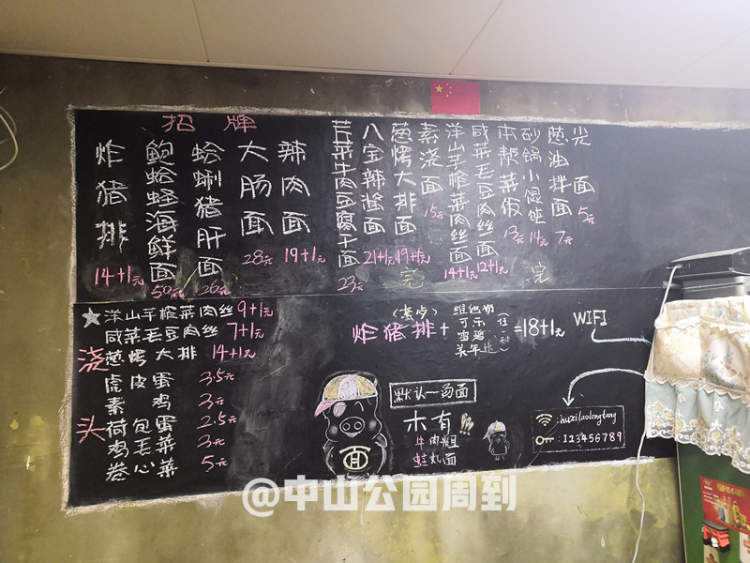 招牌
炸猪排
14+1元
鲍蛤蛏海鲜面
50元
蛤蜊猪肝面
26元
大肠面
28元
辣肉面
19+1元
芹菜牛肉豆腐干面
23元
八宝辣酱面
21+1元
葱烤大排面
19+1元
完
素浇面
15元
洋山芋榨菜肉丝面
14+1元
咸菜毛豆肉丝面
12+1元
本帮菜饭
13元
砂锅小馄饨
14元
完
葱油拌面
7元
光面
5元
浇头
★洋山芋榨菜肉丝 9+1元
咸菜毛豆肉丝 7+1元
葱烤大排 14+1元
虎皮蛋 3.5元
素鸡 3元
荷包蛋 2.5元
鸡毛菜 3元
卷心菜 5元
炸猪排+
维他奶
可乐
雪碧
(任一种)
=18+1元
WIFI
默认—汤面
木有!!!
面
huxilaolongtang
123456789
@中山公园周到